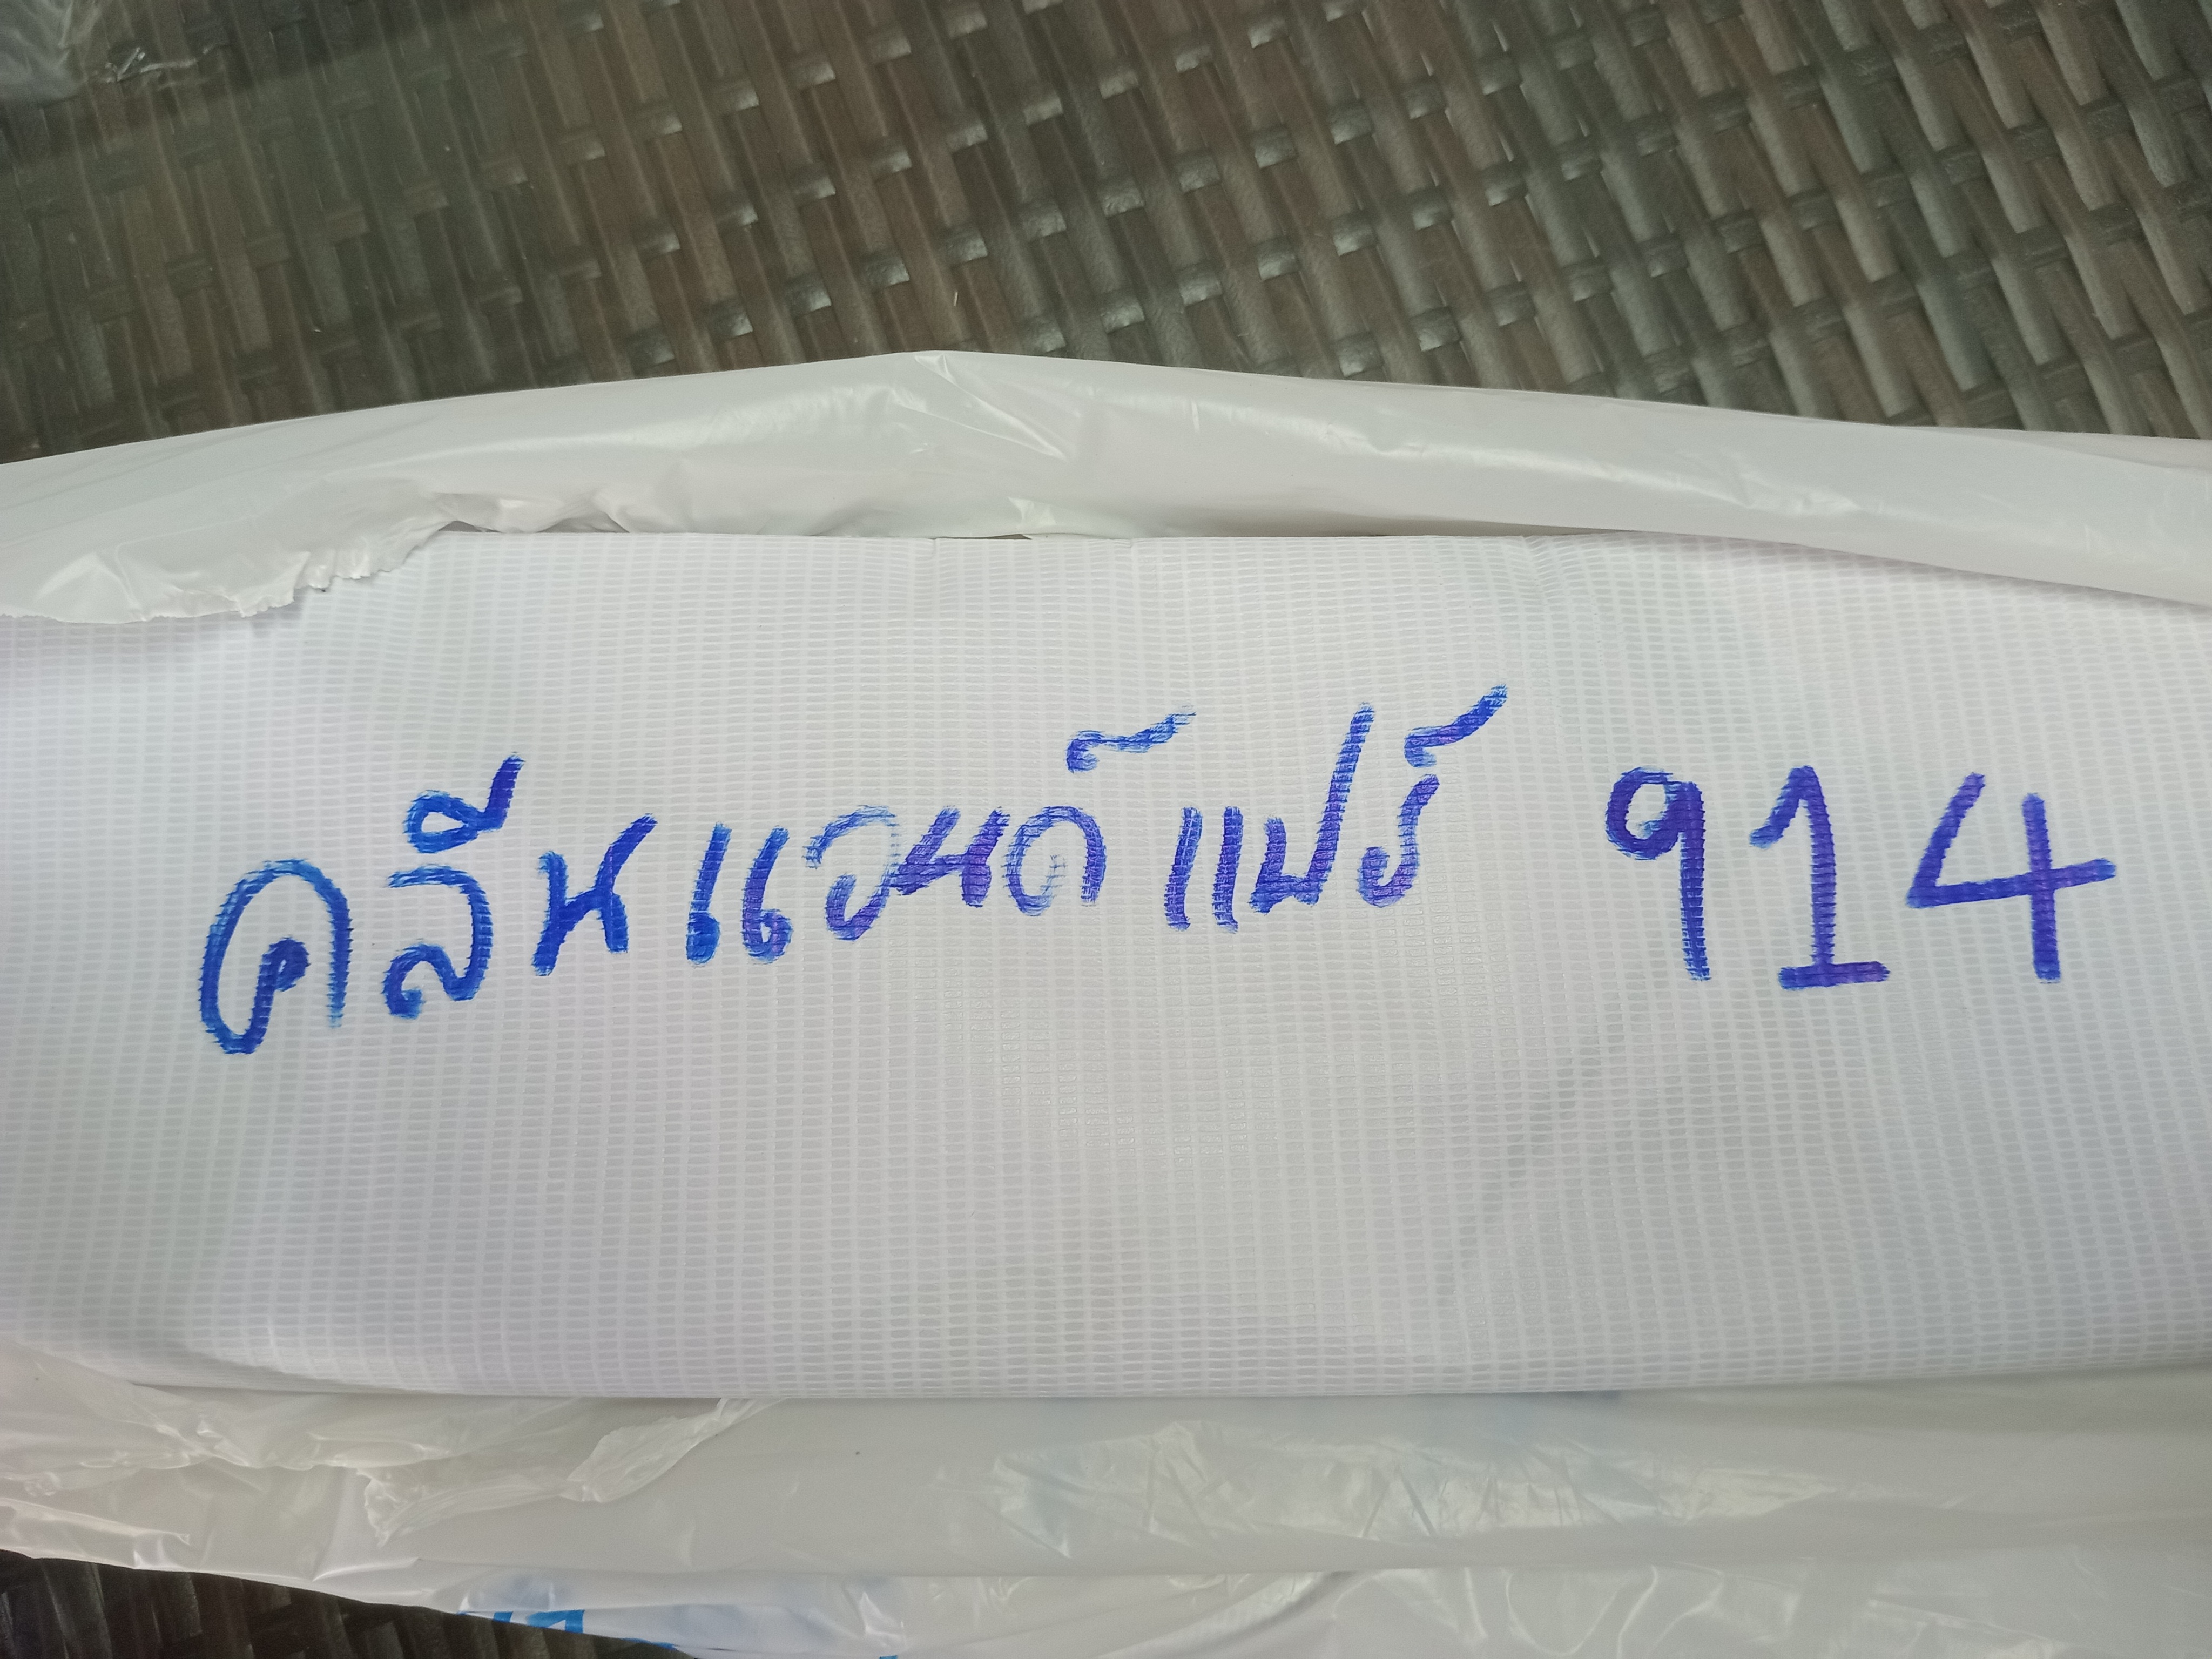 คลีนแอนด์แปร์ 914